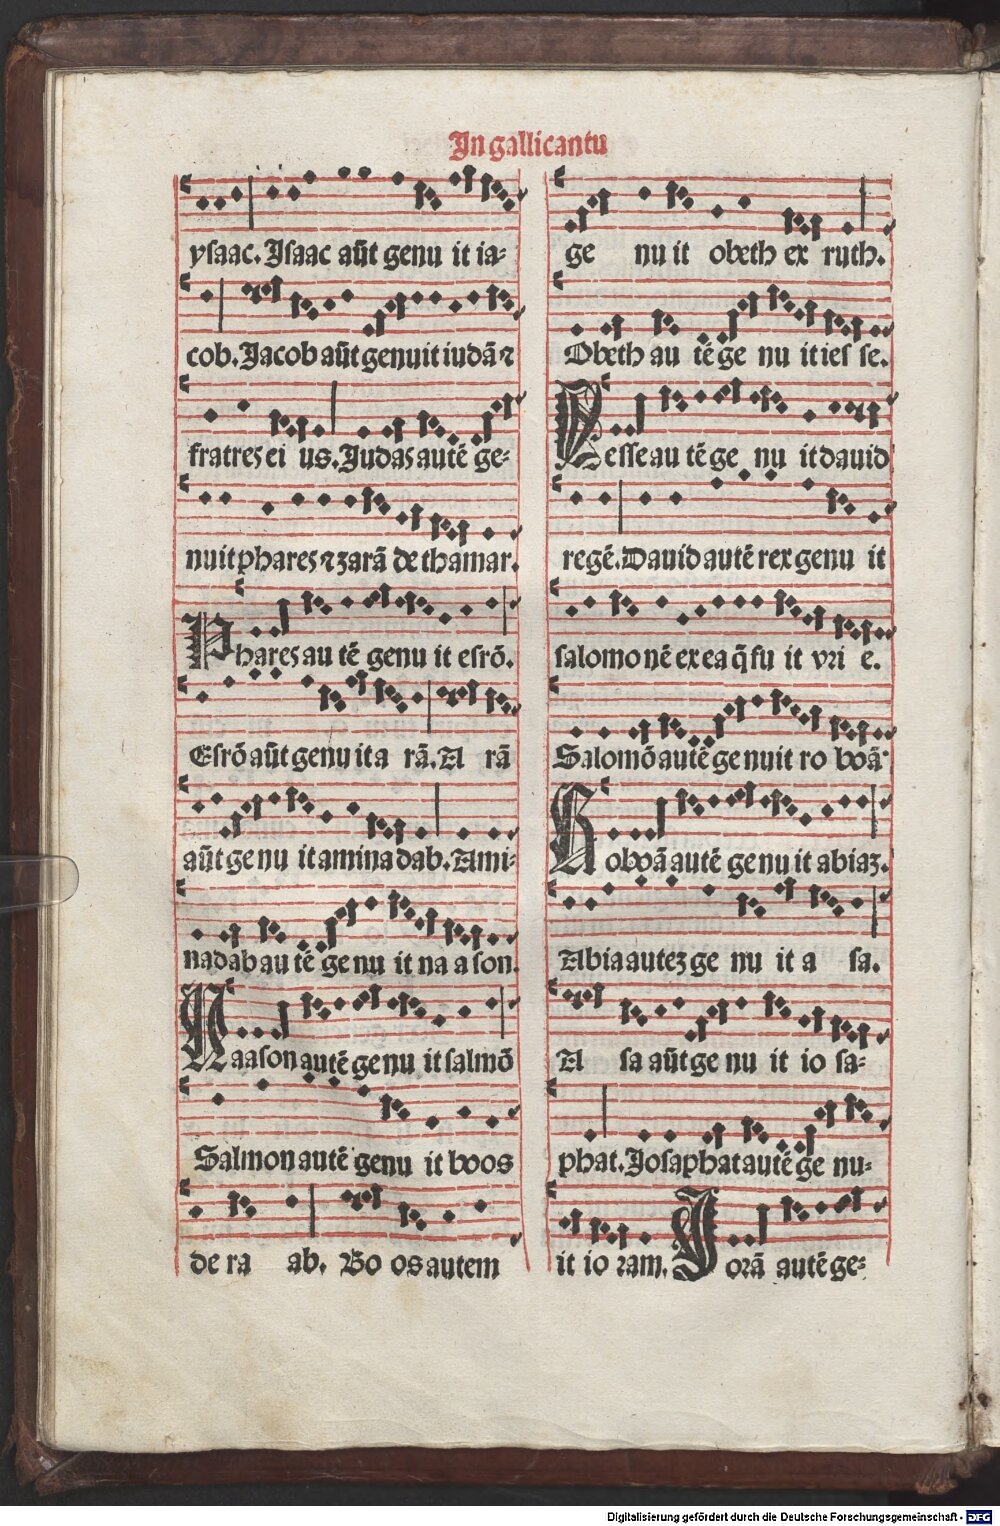 In gallicantu
ysaac. Isaac aūt genu it ia⸗
cob. Jacob aūt genuit iudā ⁊
fratres ei us. Judas autē ge⸗
nuit phares ⁊ zarā de thamar.
Phares au tē genu it esrō.
Esrō aūt genu it a rā. A rā
aūt ge nu it amina dab. Ami⸗
nadab au tē ge nu it na a son.
Naason autē ge nu it salmō
Salmon autē genu it boos
de ra ab. Bo os autem
ge nu it obeth ex ruth.
Obeth au tē ge nu it ies se.
Iesse au tē ge nu it dauid
regē. Dauid autē rex genu it
salomo nē ex ea q̄ fu it vri e.
Salomō autē ge nuit ro boā
Roboā autē ge nu it abiaz.
Abia autez ge nu it a sa.
A sa aūt ge nu it io sa⸗
phat. Josaphat autē ge nu⸗
it io ram. Jorā autē ge⸗
Digitalisierung gefördert durch die Deutsche Forschungsgemeinschaft - DFG